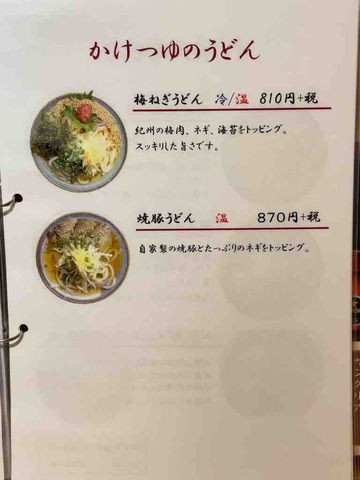 かけつゆのうどん
梅ねぎうどん 冷/温 810円+税
紀州の梅肉、ネギ、海苔をトッピング。
スッキリした旨さです。
焼豚うどん 温 870円+税
自家製の焼豚とたっぷりのネギをトッピング。